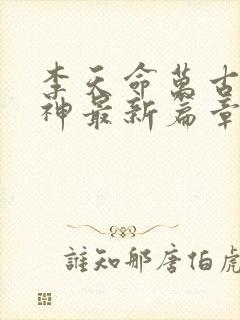 李天命萬古
神最新篇章
誰知那唐伯虎